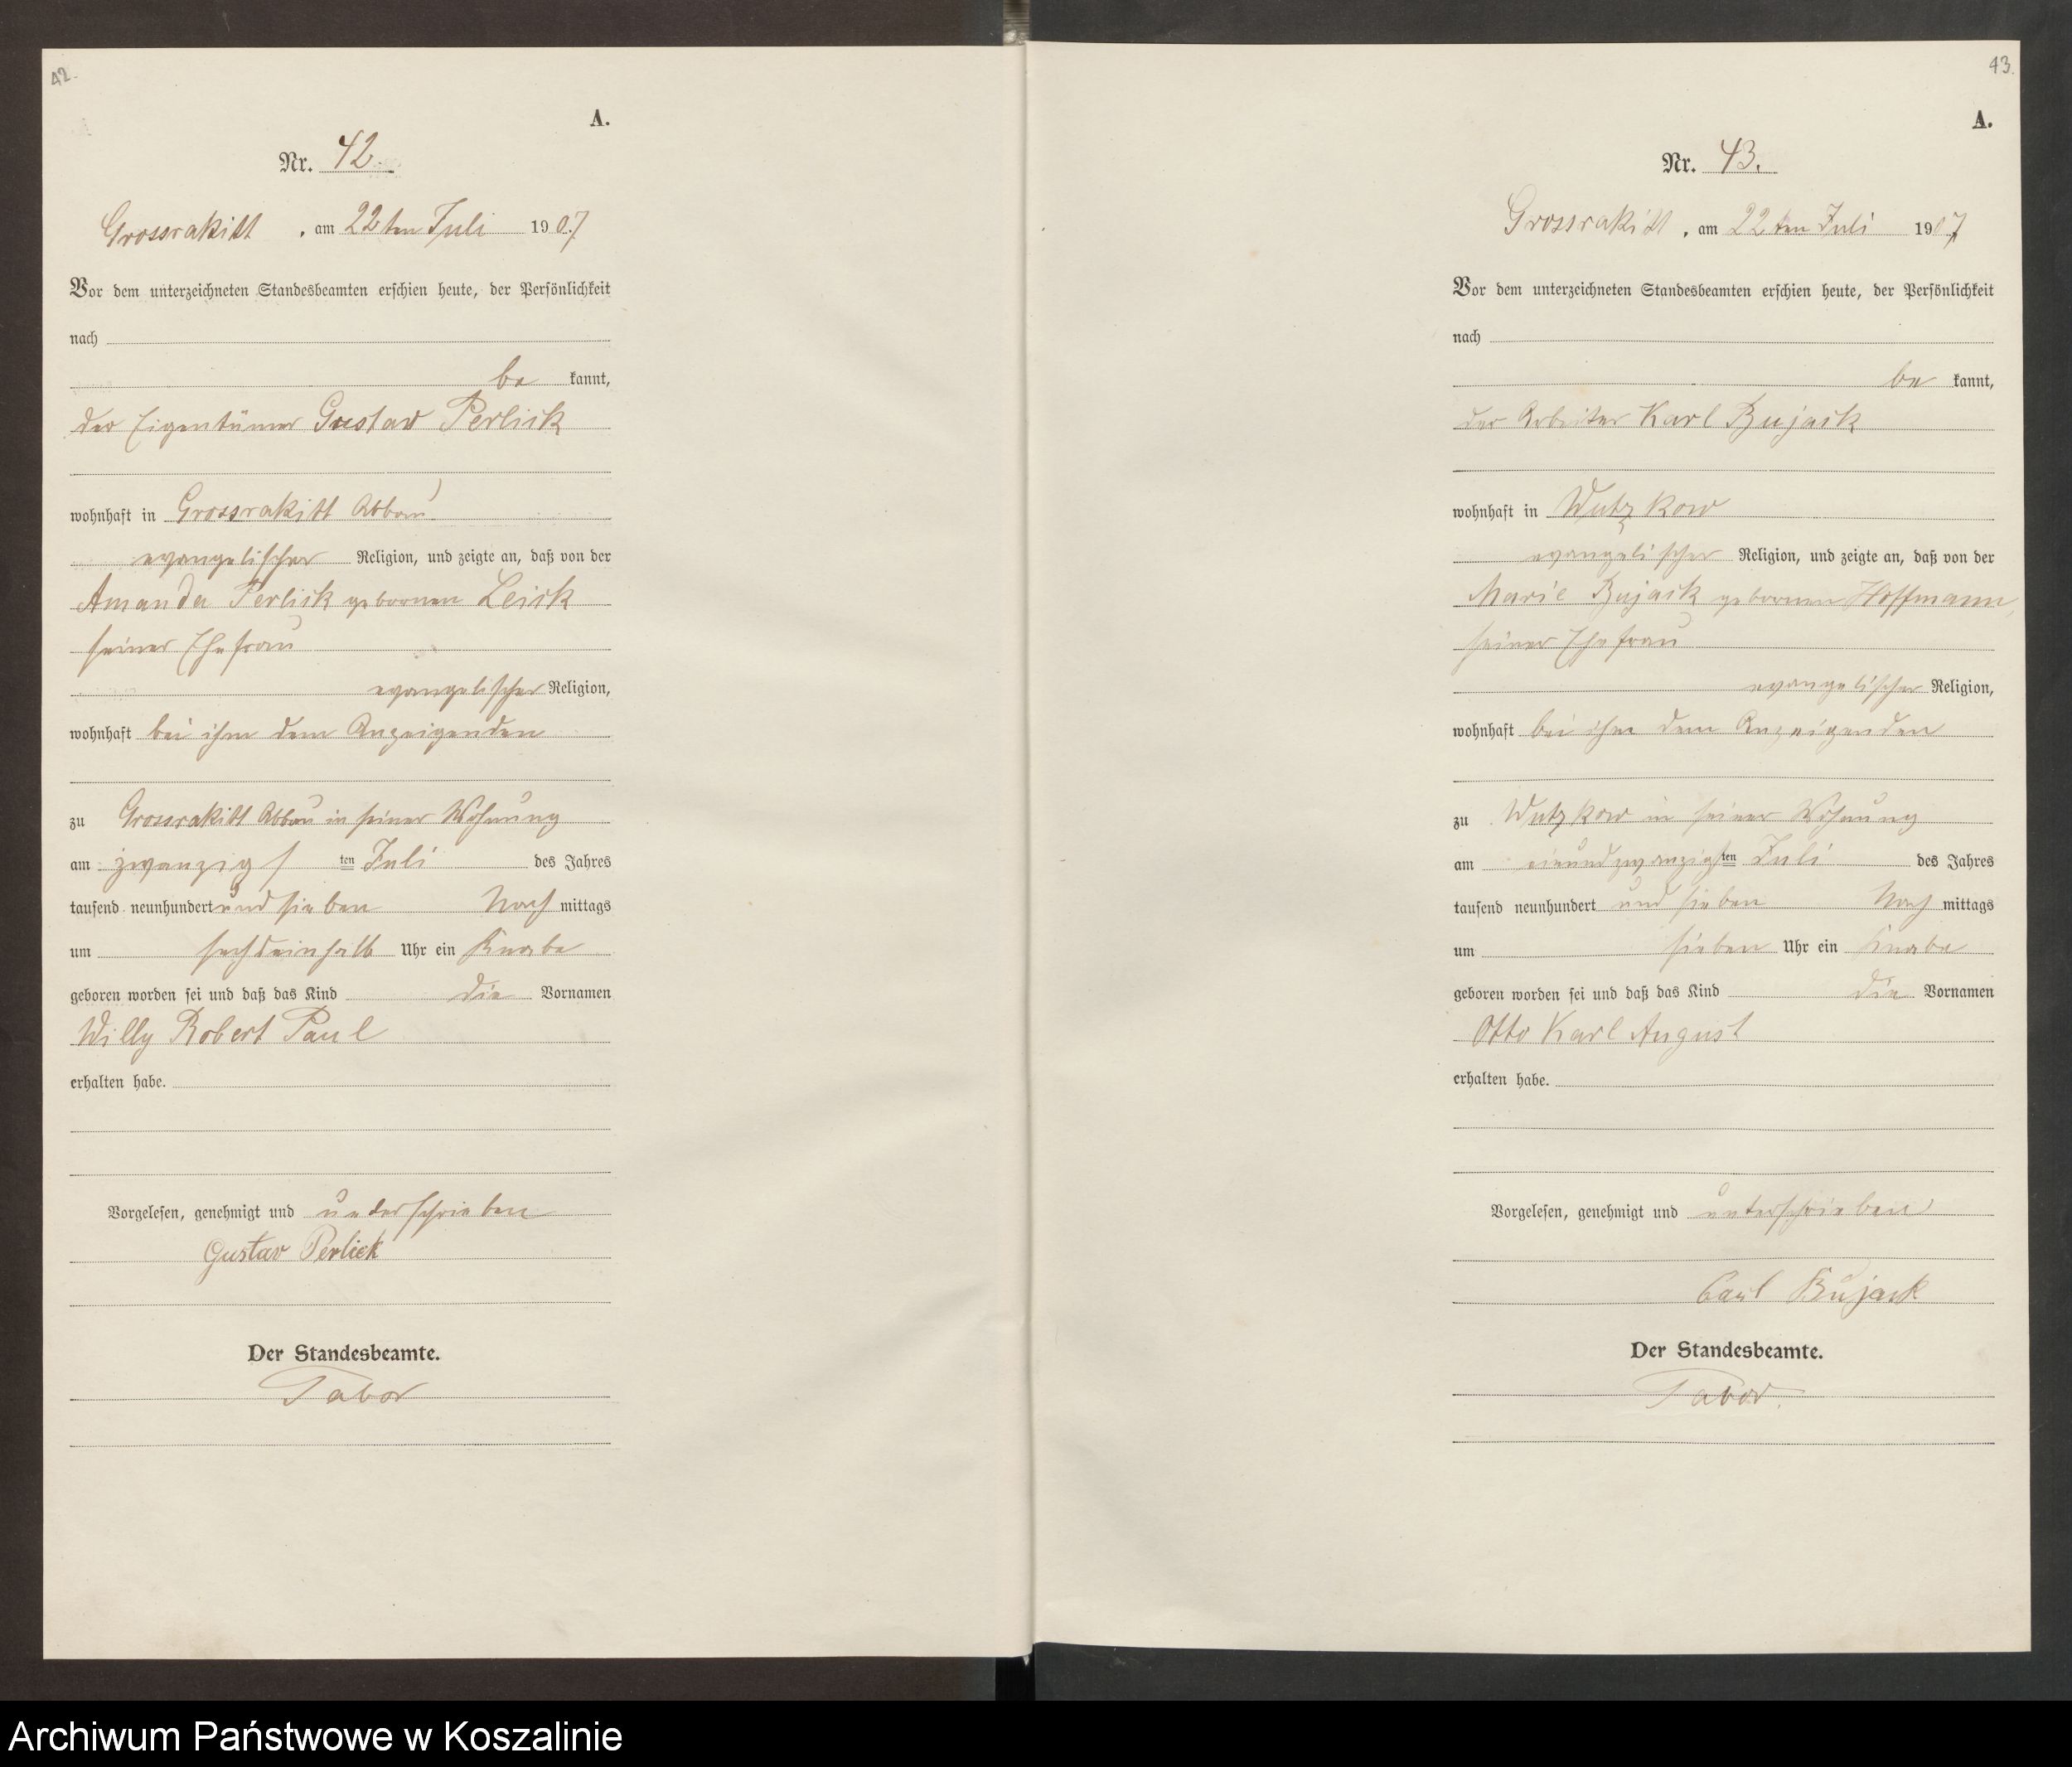 42.
A.
Nr. 42.
Grossrakitt, am 22ten Juli 1907
Vor dem unterzeichneten Standesbeamten erschien heute, der Persönlichkeit
nach
be kannt,
der Eigentümer Gustav Perlick
wohnhaft in Grossrakitt Abbau
evangelischer Religion, und zeigte an, daß von der
Amanda Perlick geborenen Leick
seiner Ehefrau
evangelischer Religion,
wohnhaft bei ihm dem Anzeigenden
zu Grossrakitt Abbau in seiner Wohnung
am zwanzigsten Juli des Jahres
tausend neunhundert und sieben Nach mittags
um sechseinhalb Uhr ein Knabe
geboren worden sei und daß das Kind die Vornamen
Willy Robert Paul
erhalten habe.
Vorgelesen, genehmigt und unterschrieben
Gustav Perlick
Der Standesbeamte.
Tabor
43.
A.
Nr. 43.
Grossrakitt, am 22ten Juli 1907
Vor dem unterzeichneten Standesbeamten erschien heute, der Persönlichkeit
nach
be kannt,
der Arbeiter Karl Bujack
wohnhaft in Wutzkow
evangelischer Religion, und zeigte an, daß von der
Marie Bujack geborenen Hoffmann,
seiner Ehefrau
evangelischer Religion,
wohnhaft bei ihm dem Anzeigenden
zu Wutzkow in seiner Wohnung
am einundzwanzigsten Juli des Jahres
tausend neunhundert und sieben Nach mittags
um sieben Uhr ein Knabe
geboren worden sei und daß das Kind die Vornamen
Otto Karl August
erhalten habe.
Vorgelesen, genehmigt und unterschrieben
Carl Bujack
Der Standesbeamte.
Tabor.
Archiwum Państwowe w Koszalinie